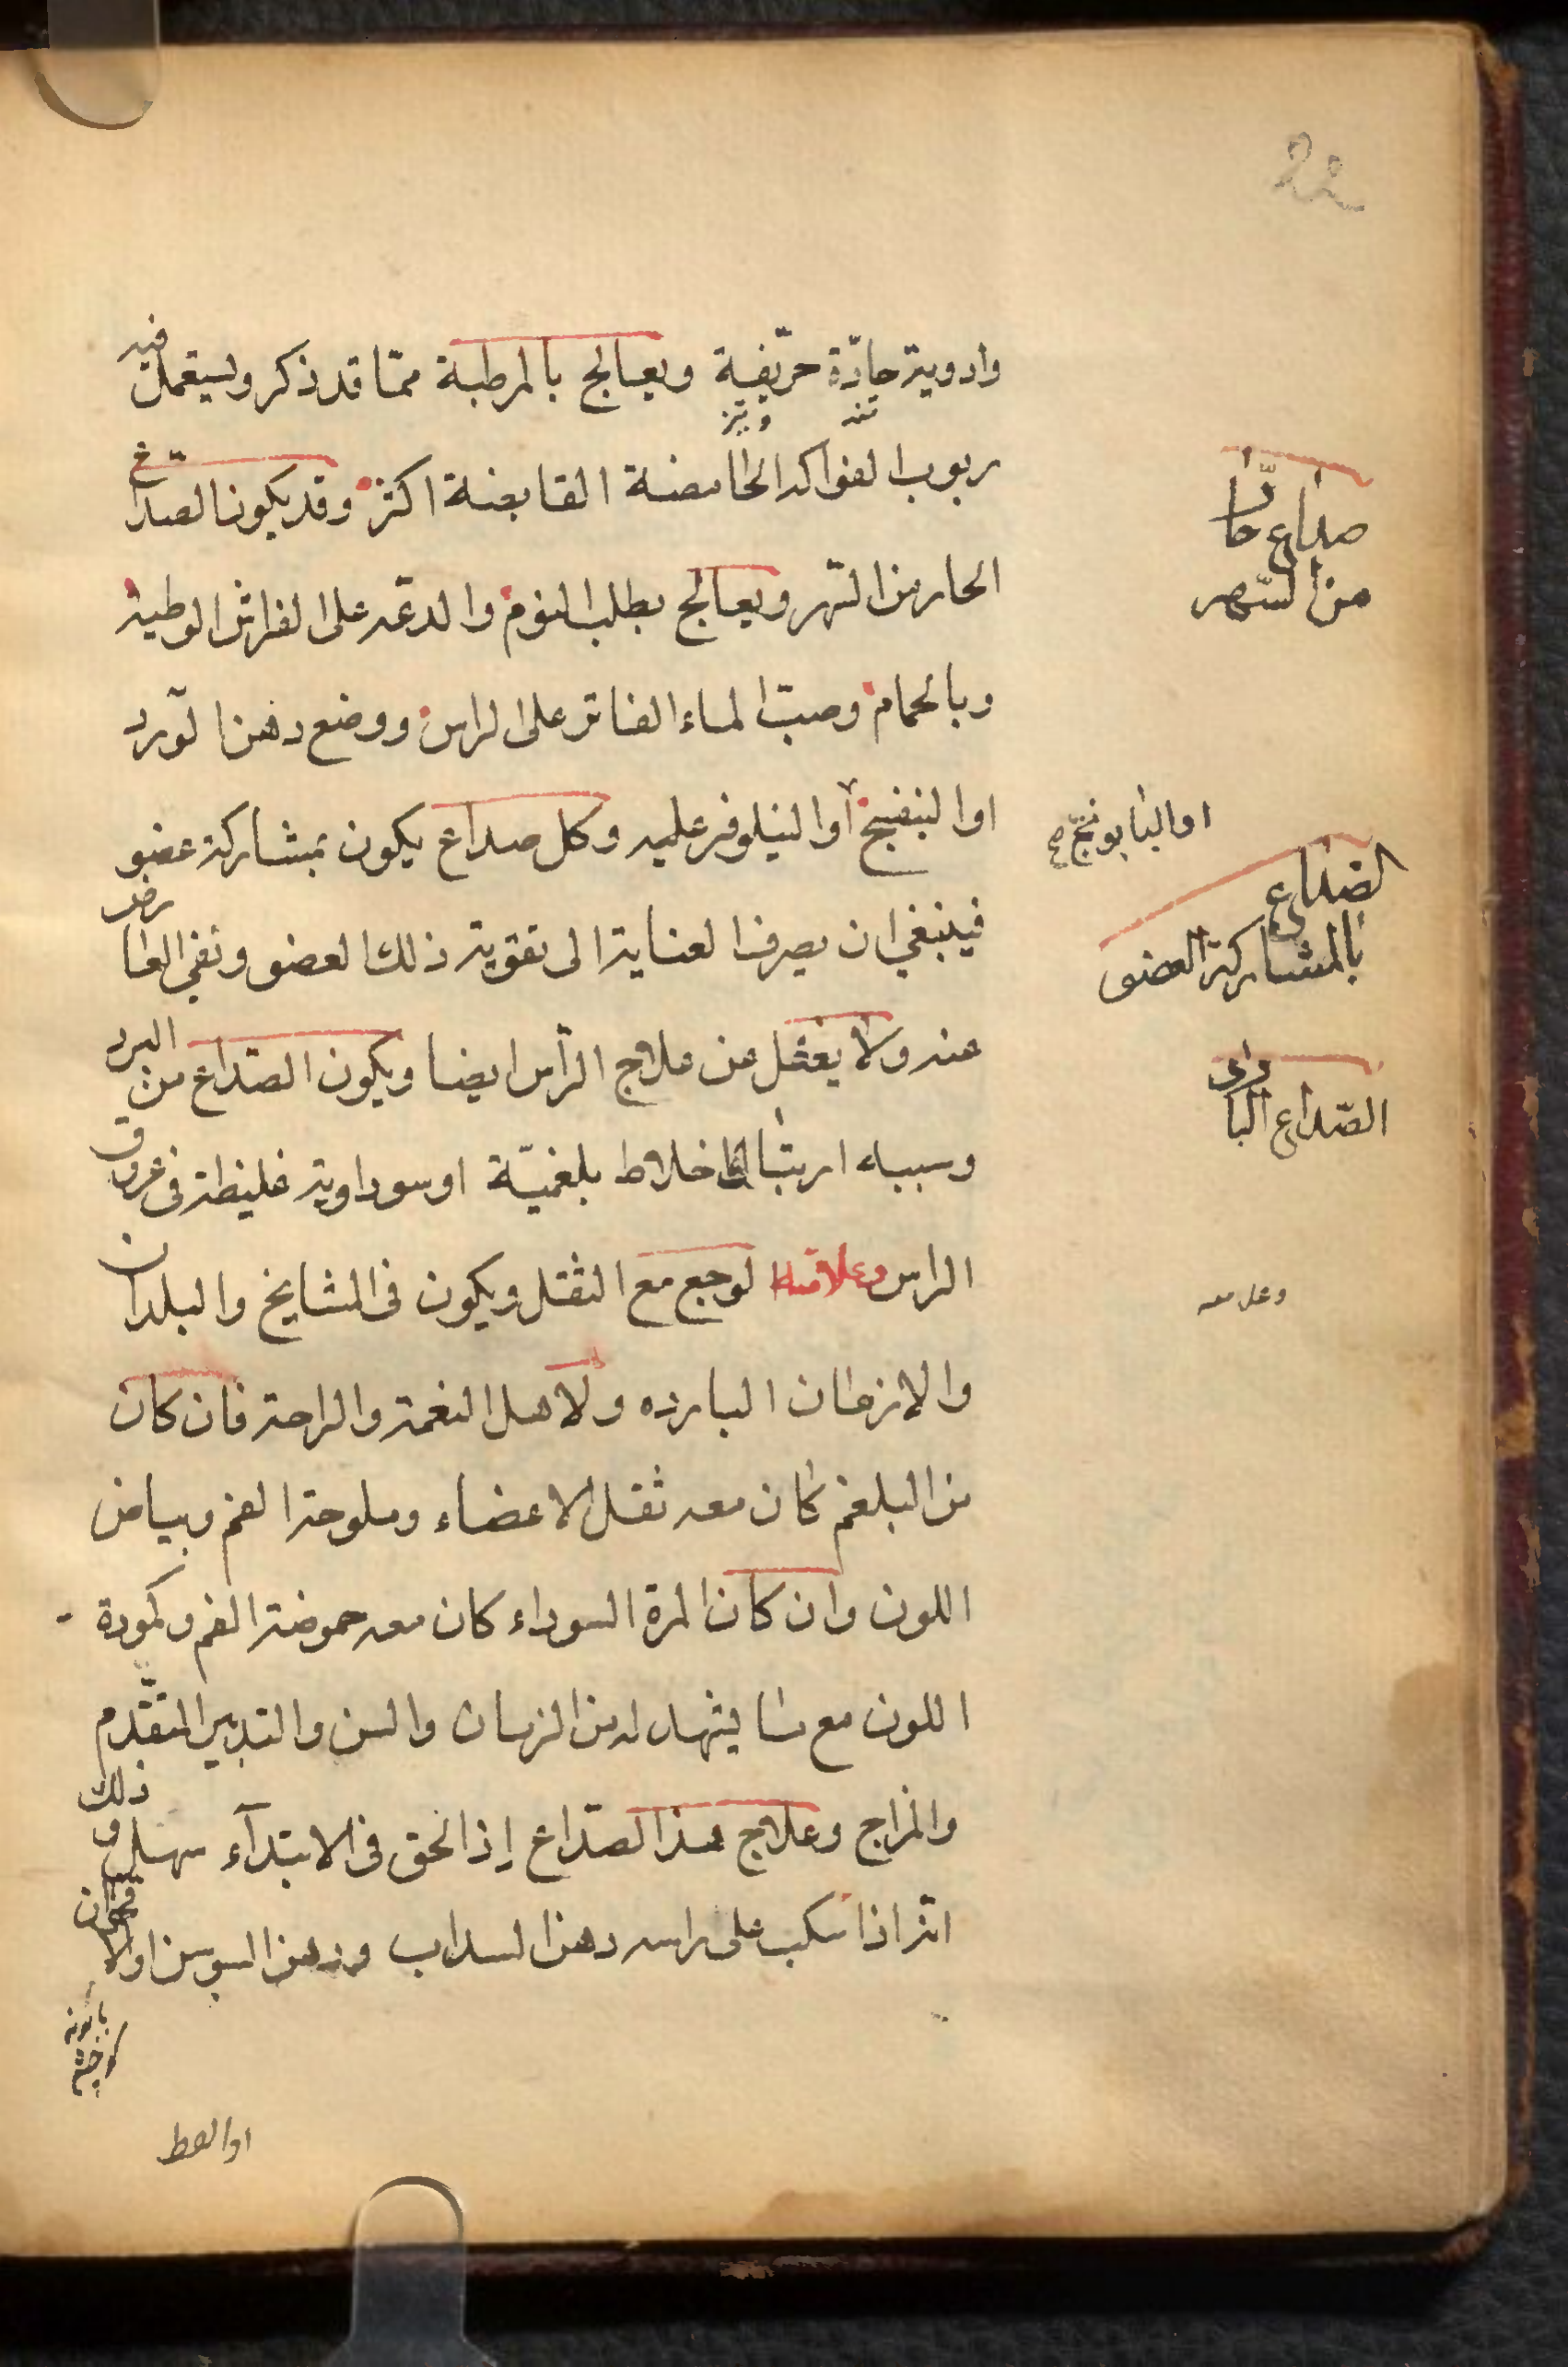 22
وادوية حادّة حرّيفية ويعالج بالمرطبة ممّا قد ذكر ويستعمل فيه
تند وتيز
ربوب الفواكه الحامضة القابضة اكثر وقد يكون الصداع
الحار من السّهر ويعالج بطلب النوم والدعة على الفراش الوطية
وبالحمام وصبّ الماء الفاتر على الراس ووضع دهن الورد
او البنفسج او النيلوفر عليه وكل صداع يكون بمشاركة عضو
فينبغي ان يصرف العناية الى تقوية ذلك العضو ونفي العارض
عنه ولا يغفل عن علاج الرأس ايضا ويكون الصّداع من البرد
وسببه ارتباك اخلاط بلغميّة او سوداوية غليظة في عروق
الراس وعلامته الوجع مع الثقل ويكون في المشايخ والبلدان
والازمان الباردة ولاهل النعمة والراحة فان كان
من البلغم كان معه ثقل الاعضاء وملوحة الفم وبياض
اللون وان كان المرة السوداء كان معه حموضة الفم وكمودة
اللون مع ما يشهد له من الزمان والسن والتدبير المتقدم
والمزاج وعلاج هذا الصّداع إذا لحق في الابتدآء سهل وذلك
انّه اذا سكب على راسه دهن السداب ودهن السوسن او الاقحوان
بابونه
او القط
صداع حارّ
من السّهر
او البابونج صح
الصداع
بالمشاركة العضو
الصّداع الباردى
وعلامته